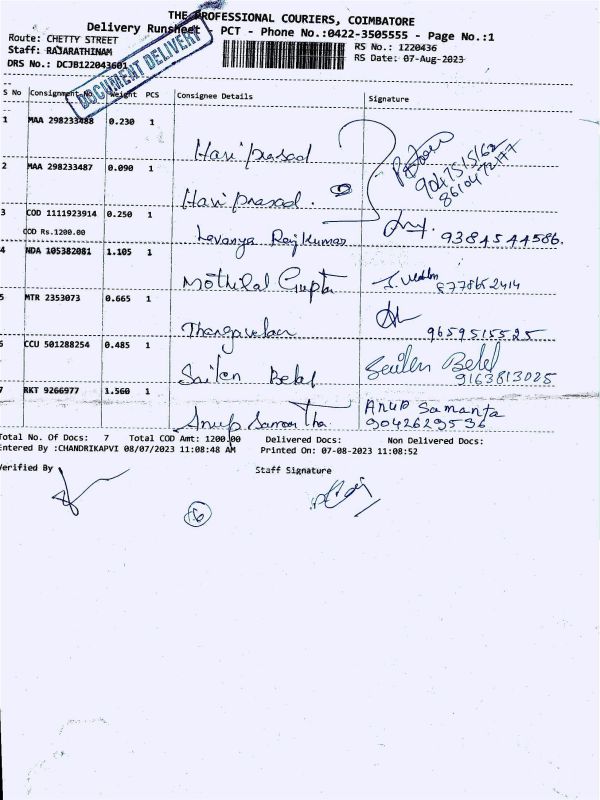 THE PROFESSIONAL COURIERS, COIMBATORE
Delivery Runsheet - PCT - Phone No.:0422-3505555 - Page No.:1
Route: CHETTY STREET
RS No.: 1220436
Staff: RAJARATHINAM
RS Date: 07-Aug-2023
DRS No.: DCJB122043601
DOCUMENT DELIVERY
S No Consignment No Weight PCS Consignee Details Signature
1 MAA 298233488 0.230 1
Hari prasad
9047515162
8610472177
2 MAA 298233487 0.090 1
Hari prasad.
3 COD 1111923914 0.250 1
COD Rs.1200.00
Lavanya Rajkumar 9384544586.
4 NDA 105382081 1.105 1
Mothilal Gupta 8778652414
5 MTR 2353073 0.665 1
Thangavelan 9659515525
6 CCU 501288254 0.485 1
Sailen Belel Sailen Belel
9163813025
7 RKT 9266977 1.560 1
Anup Samantha ANUP Samanta
9042629536
Total No. Of Docs: 7 Total COD Amt: 1200.00 Delivered Docs: Non Delivered Docs:
Entered By :CHANDRIKAPVI 08/07/2023 11:08:48 AM Printed On: 07-08-2023 11:08:52
Verified By Staff Signature